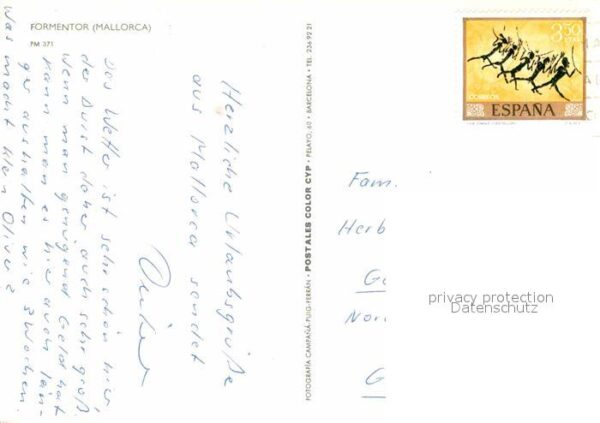 FORMENTOR (MALLORCA)
PM 371
Herzliche Urlaubsgrüße
aus Mallorca sendet
Das Wetter ist sehr schön hier,
der Durst daher auch sehr groß.
Wenn man genügend Geld hat
kann man es hier auch län-
ger aushalten wie 3 Wochen.
Was macht klein Oliver?
FOTOGRAFÍA CAMPAÑÁ PUIG-FERRÁN. • POSTALES COLOR CYP • PELAYO, 60 • BARCELONA • TEL. 236 92 21
3,50
PTAS
CORREOS
ESPAÑA
Fam.
Herb
G
Nor
G
privacy protection
Datenschutz